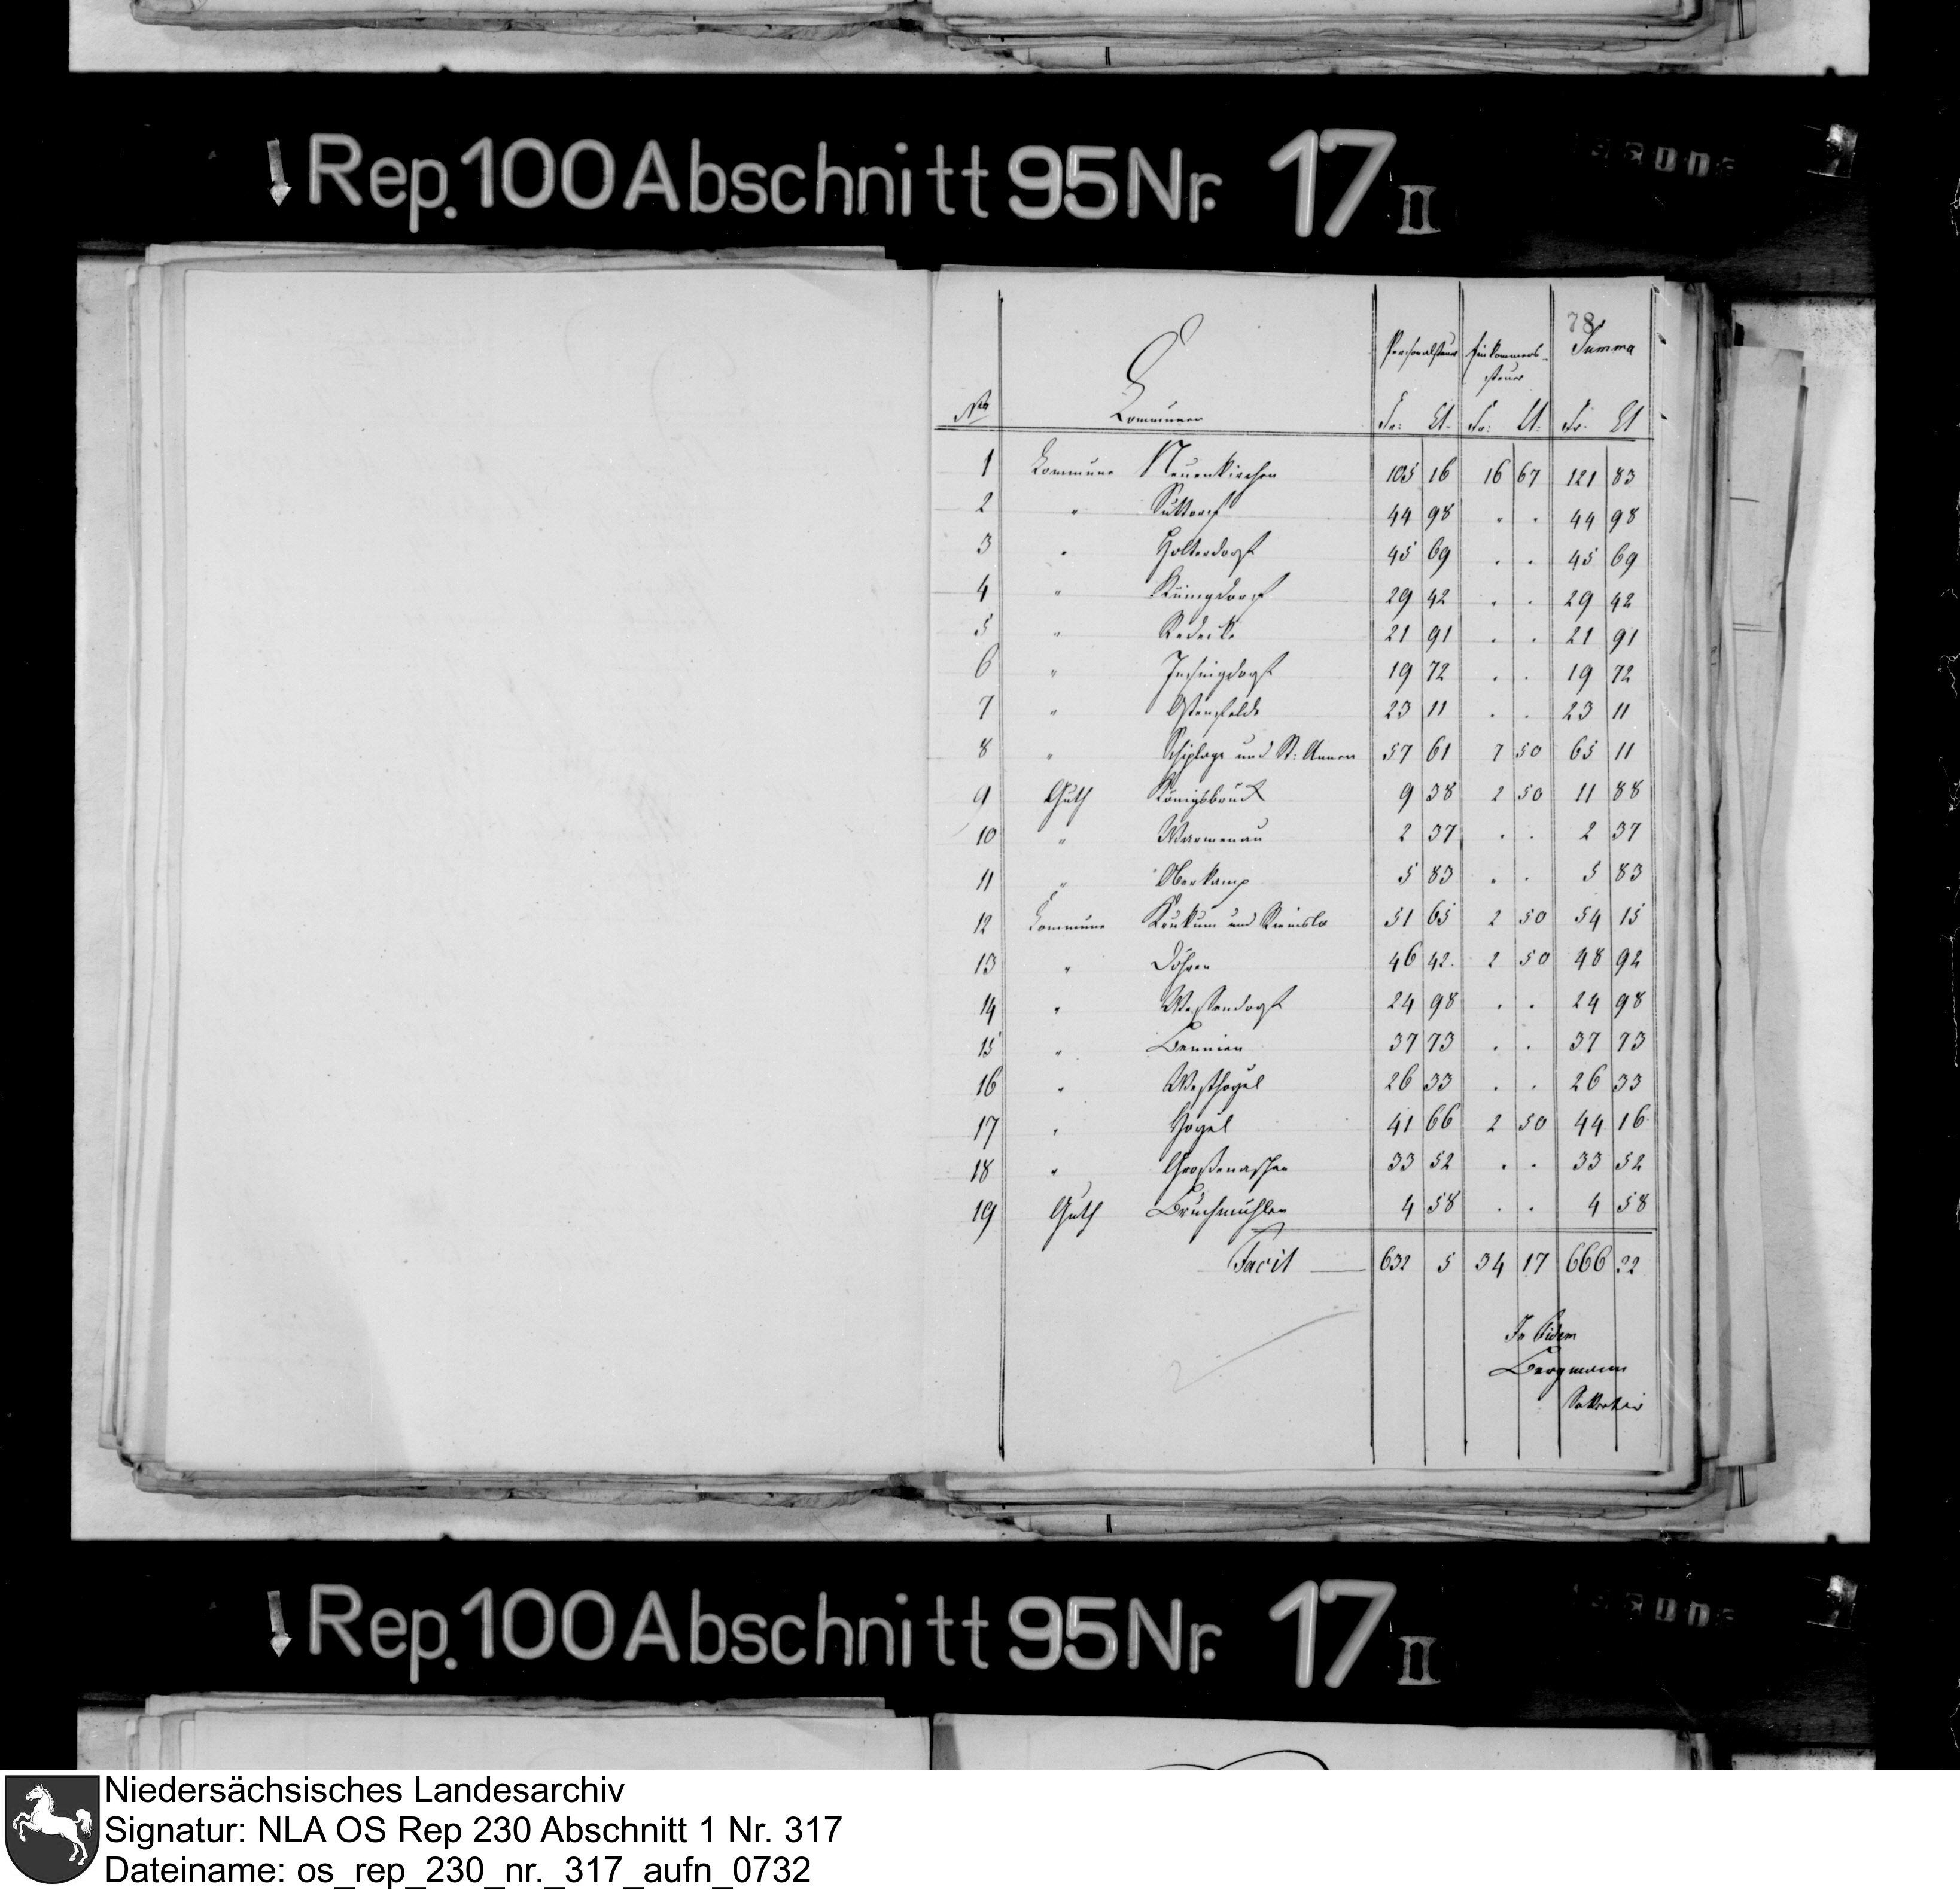 Rep. 100 Abschnitt 95 Nr. 17 II
78
No Communen Personalsteuer Einkommens-steuer Summa
Fr: Ct. Fr: Ct. Fr. Ct
1 Commune Neuenkirchen 105 16 16 67 121 83
2 " Suttorf 44 98 . . 44 98
3 " Holterdorf 45 69 . . 45 69
4 " Küingdorf 29 42 . . 29 42
5 " Redecke 21 91 . . 21 91
6 " Insingdorf 19 72 . . 19 72
7 " Ostenfelde 23 11 . . 23 11
8 " Schiplage und St: Annen 57 61 7 50 65 11
9 Guth Königsbrück 9 38 2 50 11 88
10 " Warmenau 2 37 . . 2 37
11 " Oberkamp 5 83 . . 5 83
12 Commune Krukum und Riemslo 51 65 2 50 54 15
13 " Döhren 46 42. 2 50 48 92
14 " Westendorf 24 98 . . 24 98
15 " Bennien 37 73 . . 37 73
16 " Westhoyel 26 33 . . 26 33
17 " Hoyel 41 66 2 50 44 16
18 " Großenaschen 33 52 . . 33 52
19 Guth Bruchmühlen 4 58 . . 4 58
Facit 632 5 34 17 666 22
In fidem
Bergmann
Sekretair
Rep. 100 Abschnitt 95 Nr. 17 II
Niedersächsisches Landesarchiv
Signatur: NLA OS Rep 230 Abschnitt 1 Nr. 317
Dateiname: os_rep_230_nr._317_aufn_0732